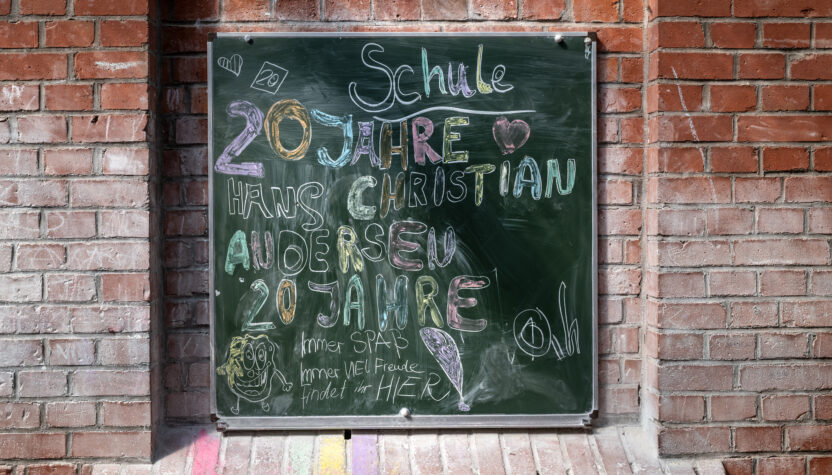 Schule
20
20 JAHRE
HANS CHRISTIAN
ANDERSEN
20 JAHRE
Immer SPAß
Immer VIEL Freude
findet ihr HIER!